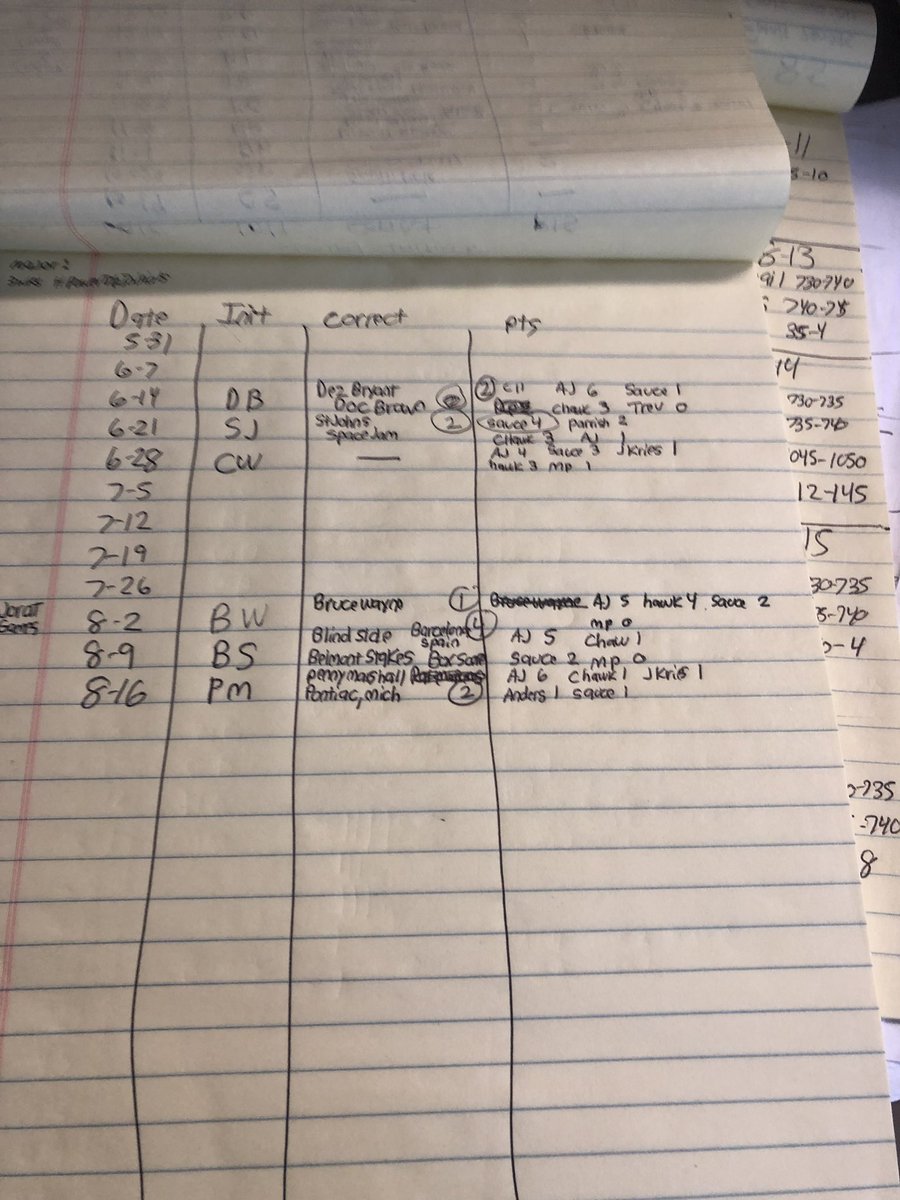 Date Init correct pts
5-31
6-7
Dez Bryant ② CJJ AJ 6 Sauce 1
6-14 DB Doc Brown ② chawk 3 Trev 0
6-21 SJ St Johns ② sauce 4 parrish 2
Spacejam Chawk 3 AJ 1
6-28 CW — AJ 4 Sauce 3 JKries 1
hawk 3 mp 1
7-5
7-12
7-19
7-26
Bruce wayne ① Bruce wayne AJ 5 hawk 4 Sauce 2
8-2 BW mp 0
Blind side Barcelona Spain ④ AJ 5 Chaw 1
8-9 BS Belmont Stakes Sauce 2 mp 0
penny marshall AJ 6 Chawk 1 JKries 1
8-16 PM Pontiac, mich ② Anders 1 sauce 1
-11
5-10
5-13
730-740
740-78
35-4
14
730-735
735-740
045-1050
12-145
15
30-735
5-740
-4
-735
-740
8